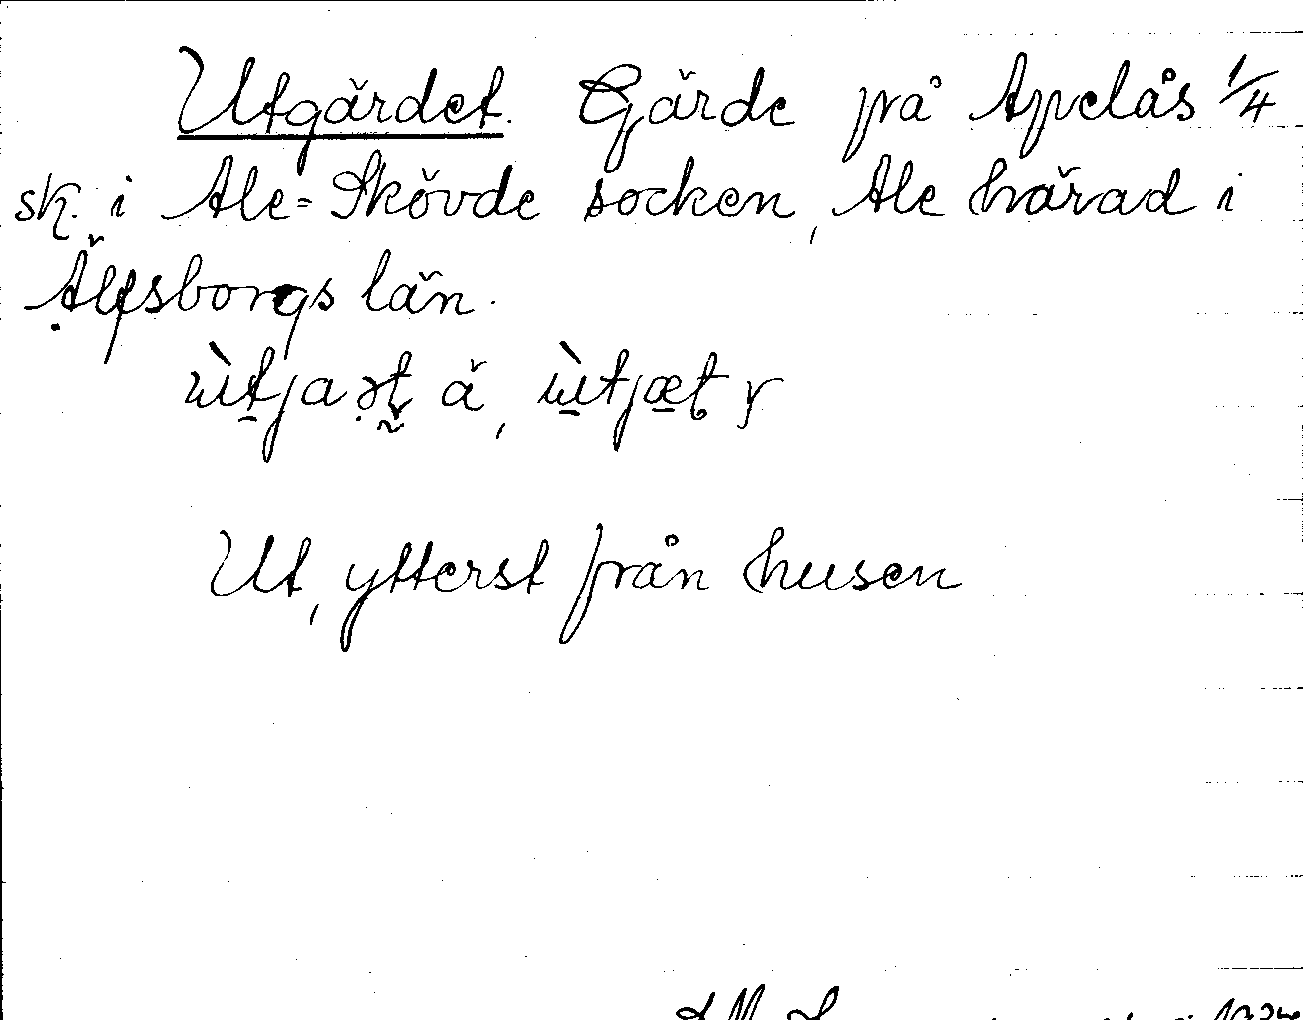 Utgärdet. Gärde på Apelås 1/4
sk. i Ale=Skövde socken, Ale härad i
Älfsborgs län.
ù̱tjaət ä, ù̱tjæ̱t y
Ut, ytterst från husen